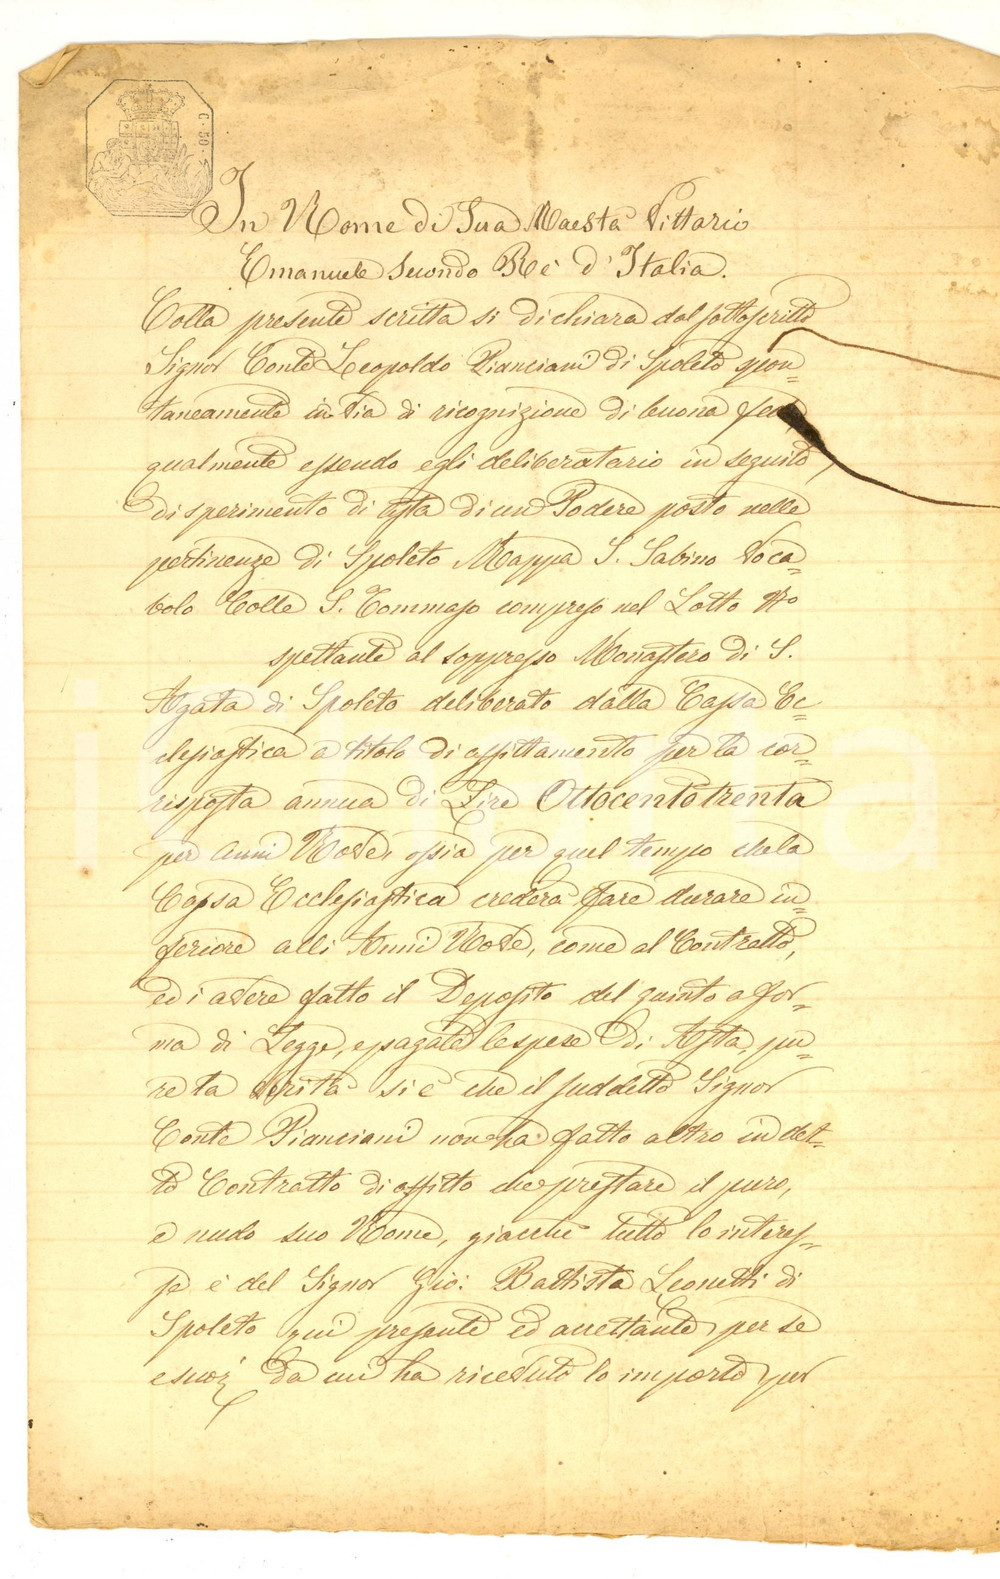 C. 50
In Nome di Sua Maestà Vittorio
Emanuele Secondo Rè d'Italia.
Colla presente scritta si dichiara dal sottoscritto
Signor Conte Leopoldo Pianciani di Spoleto spon=
taneamente in via di ricognizione di buona fede
qualmente essendo egli deliberatario in seguito,
di sperimento di Asta di un Podere posto nelle
pertinenze di Spoleto Mappa S. Sabino Voca=
bolo Colle S. Tommaso compreso nel Lotto No
spettante al soppresso Monastero di S.
Agata di Spoleto deliberato dalla Cassa Ec=
clesiastica a titolo di affittamento per la cor=
risposta annua di Lire Ottocentotrenta
per anni Nove, ossia per quel tempo che la
Cassa Ecclesiastica crederà fare durare in=
feriore alli Anni Nove, come al Contratto,
ed i avere fatto il Deposito del quinto a for=
ma di Legge, e pagate le spese di Asta, pu=
re la verità si è che il suddetto Signor
Conte Pianciani non ha fatto altro in det=
to Contratto di affitto che prestare il puro,
e nudo suo Nome, giacché tutto lo interes=
se è del Signor Gio: Battista Leonetti di
Spoleto qui presente ed accettante per se
e suoi, da cui ha ricevuto lo importo per